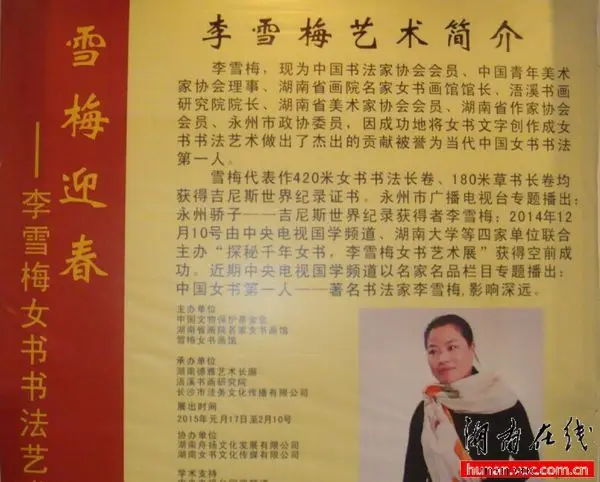 雪梅迎春
——李雪梅女书书法艺
李雪梅艺术简介
李雪梅，现为中国书法家协会会员、中国青年美术
家协会理事、湖南省画院名家女书画馆馆长、浯溪书画
研究院院长、湖南省美术家协会会员、湖南省作家协会
会员、永州市政协委员，因成功地将女书文字创作成女
书书法艺术做出了杰出的贡献被誉为当代中国女书书法
第一人。
雪梅代表作420米女书书法长卷、180米草书长卷均
获得吉尼斯世界纪录证书。永州市广播电视台专题播出：
永州骄子——吉尼斯世界纪录获得者李雪梅；2014年12
月10号由中央电视国学频道、湖南大学等四家单位联合
主办“探秘千年女书，李雪梅女书艺术展”获得空前成
功。近期中央电视国学频道以名家名品栏目专题播出：
中国女书第一人——著名书法家李雪梅,影响深远。
主办单位
中国文物保护基金会
湖南省画院名家女书画馆
雪梅女书画馆
承办单位
湖南德雅艺术长廊
浯溪书画研究院
长沙市法务文化传播有限公司
展出时间
2015年元月17日至2月10号
协办单位
湖南舟扬文化发展有限公司
湖南女书文化传媒有限公司
学术支持
湖南在线
hunan.voc.com.cn